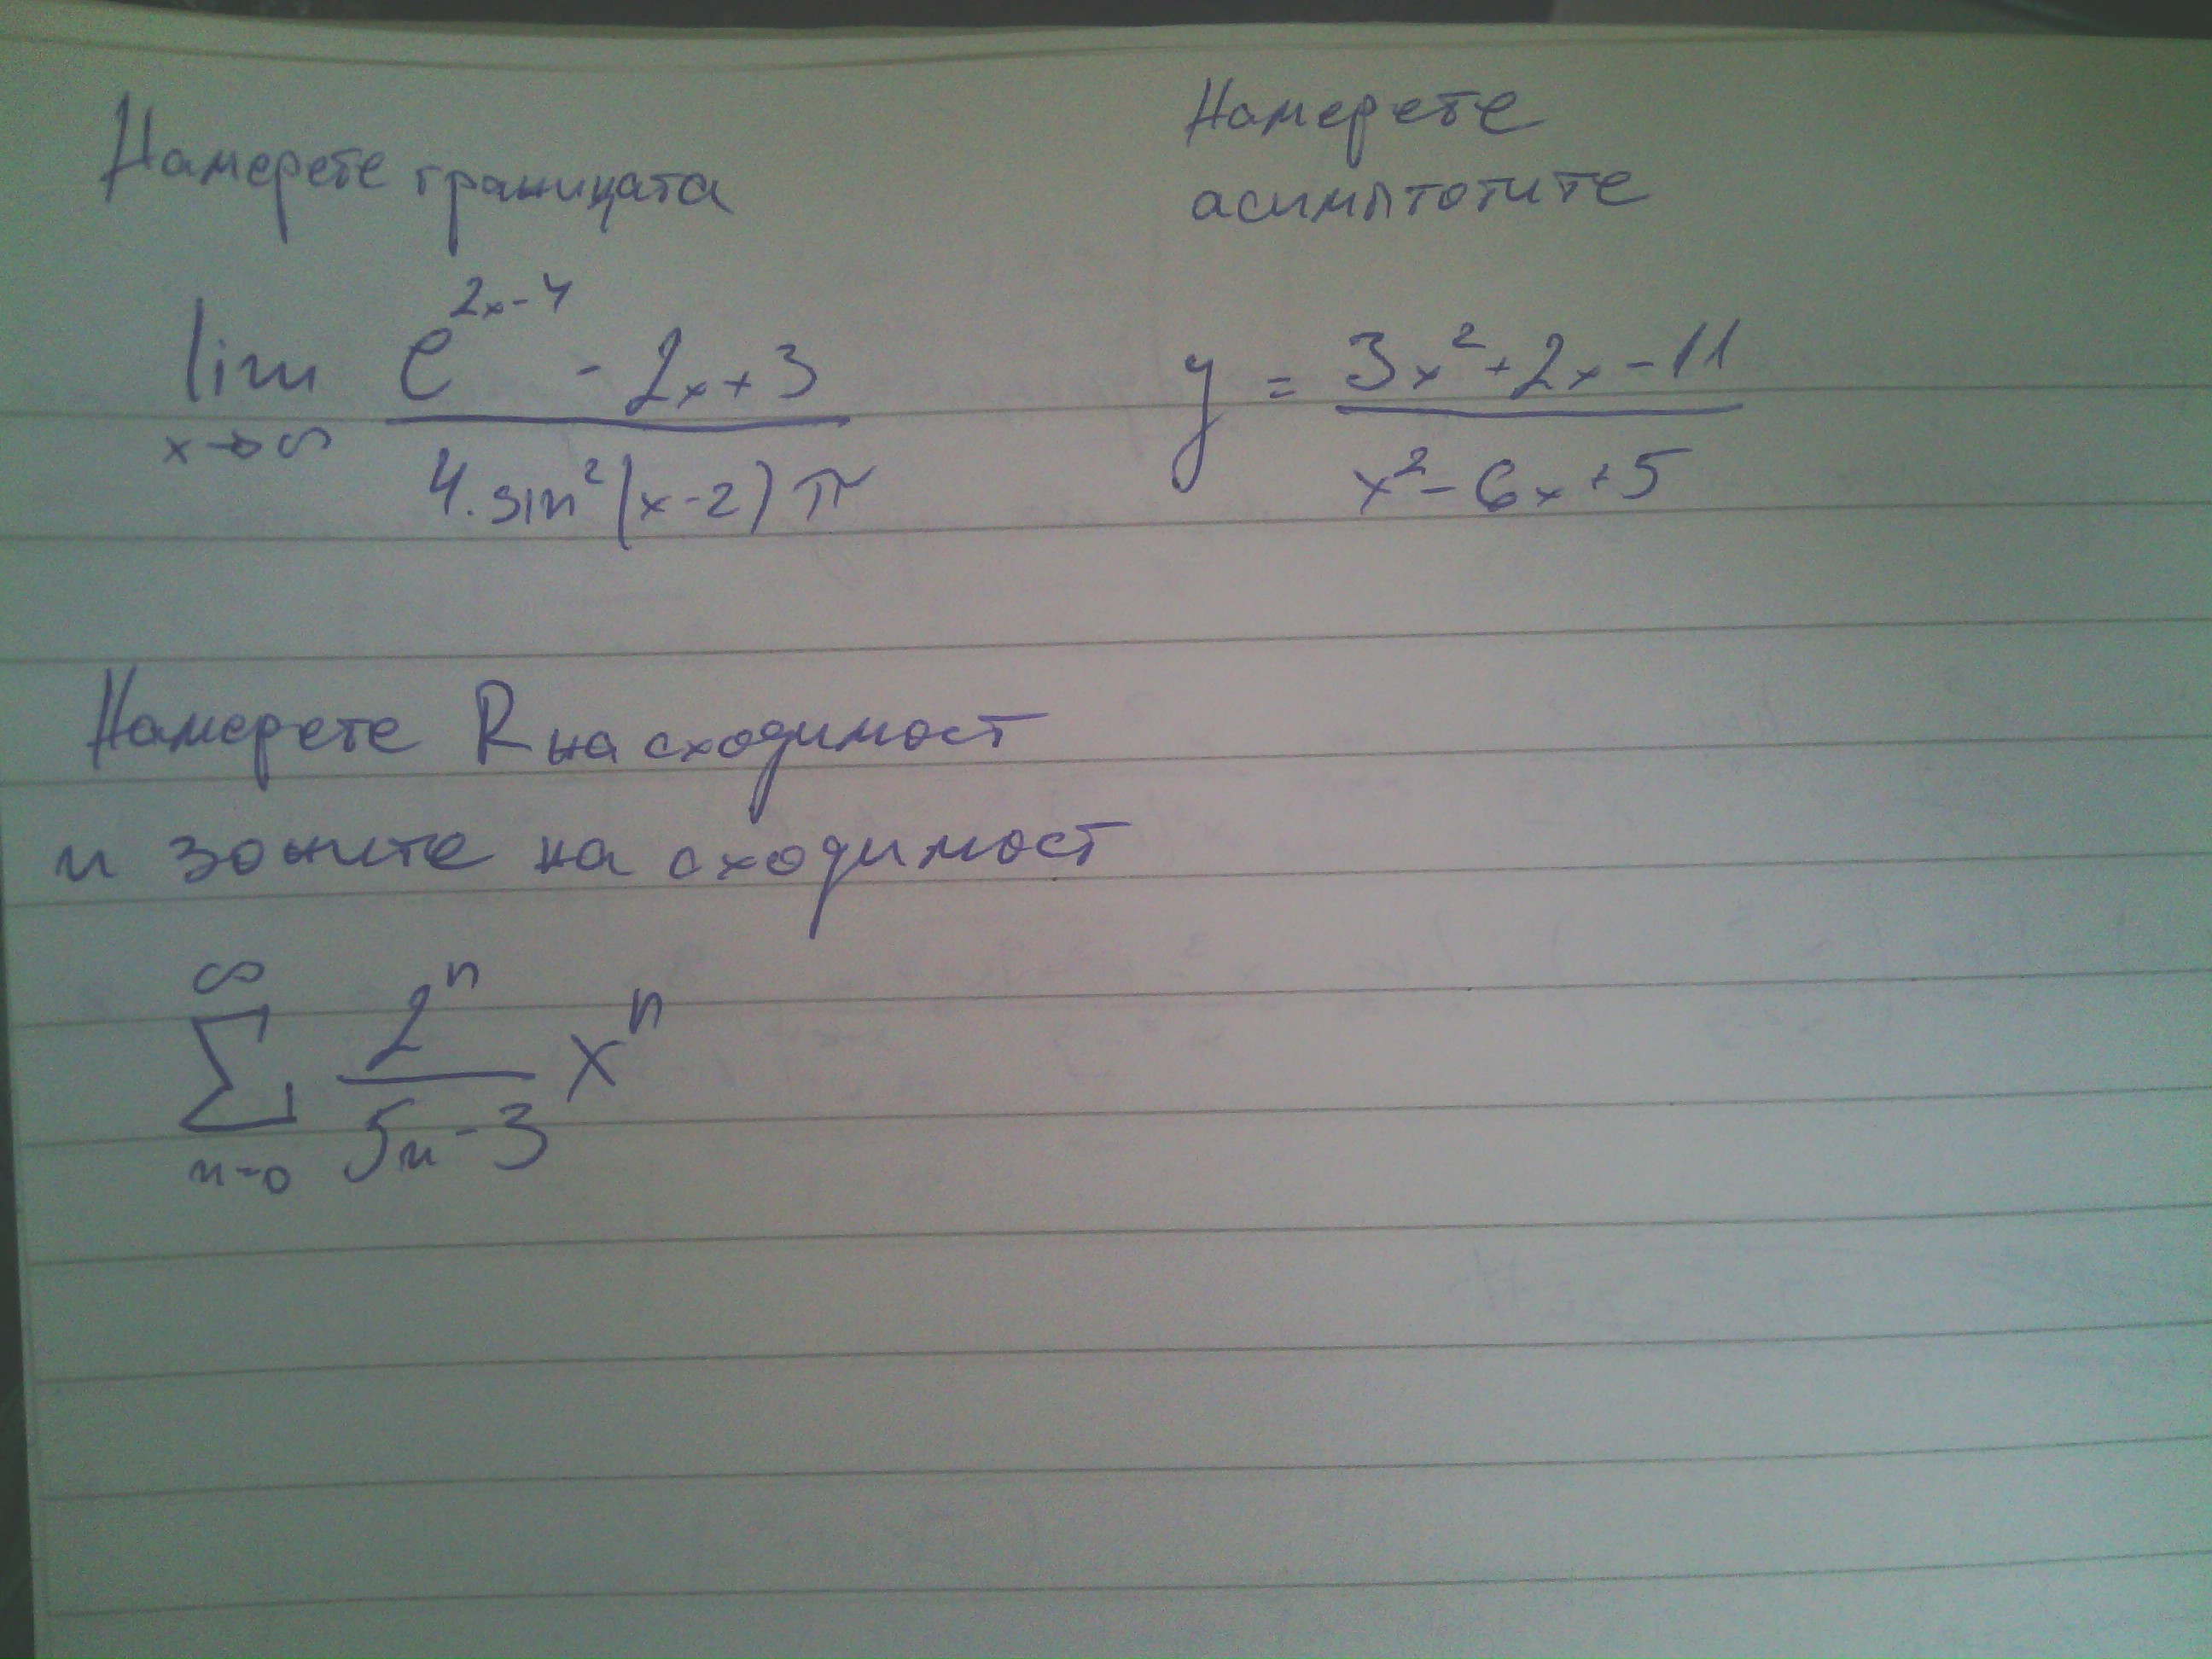 Намерете границата
lim x→∞ (e^(2x-4) - 2x + 3) / (4.sin²(x-2)π)
Намерете
асимптотите
y = (3x² + 2x - 11) / (x² - 6x + 5)
Намерете R на сходимост
и зоните на сходимост
∞
∑ (2^n / (5n-3)) x^n
n=0